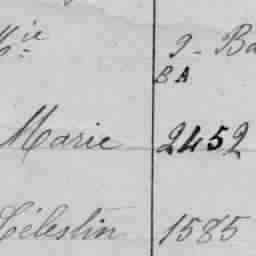 Cie 9 - Ba
BA
Marie 2452
Célestin 1585